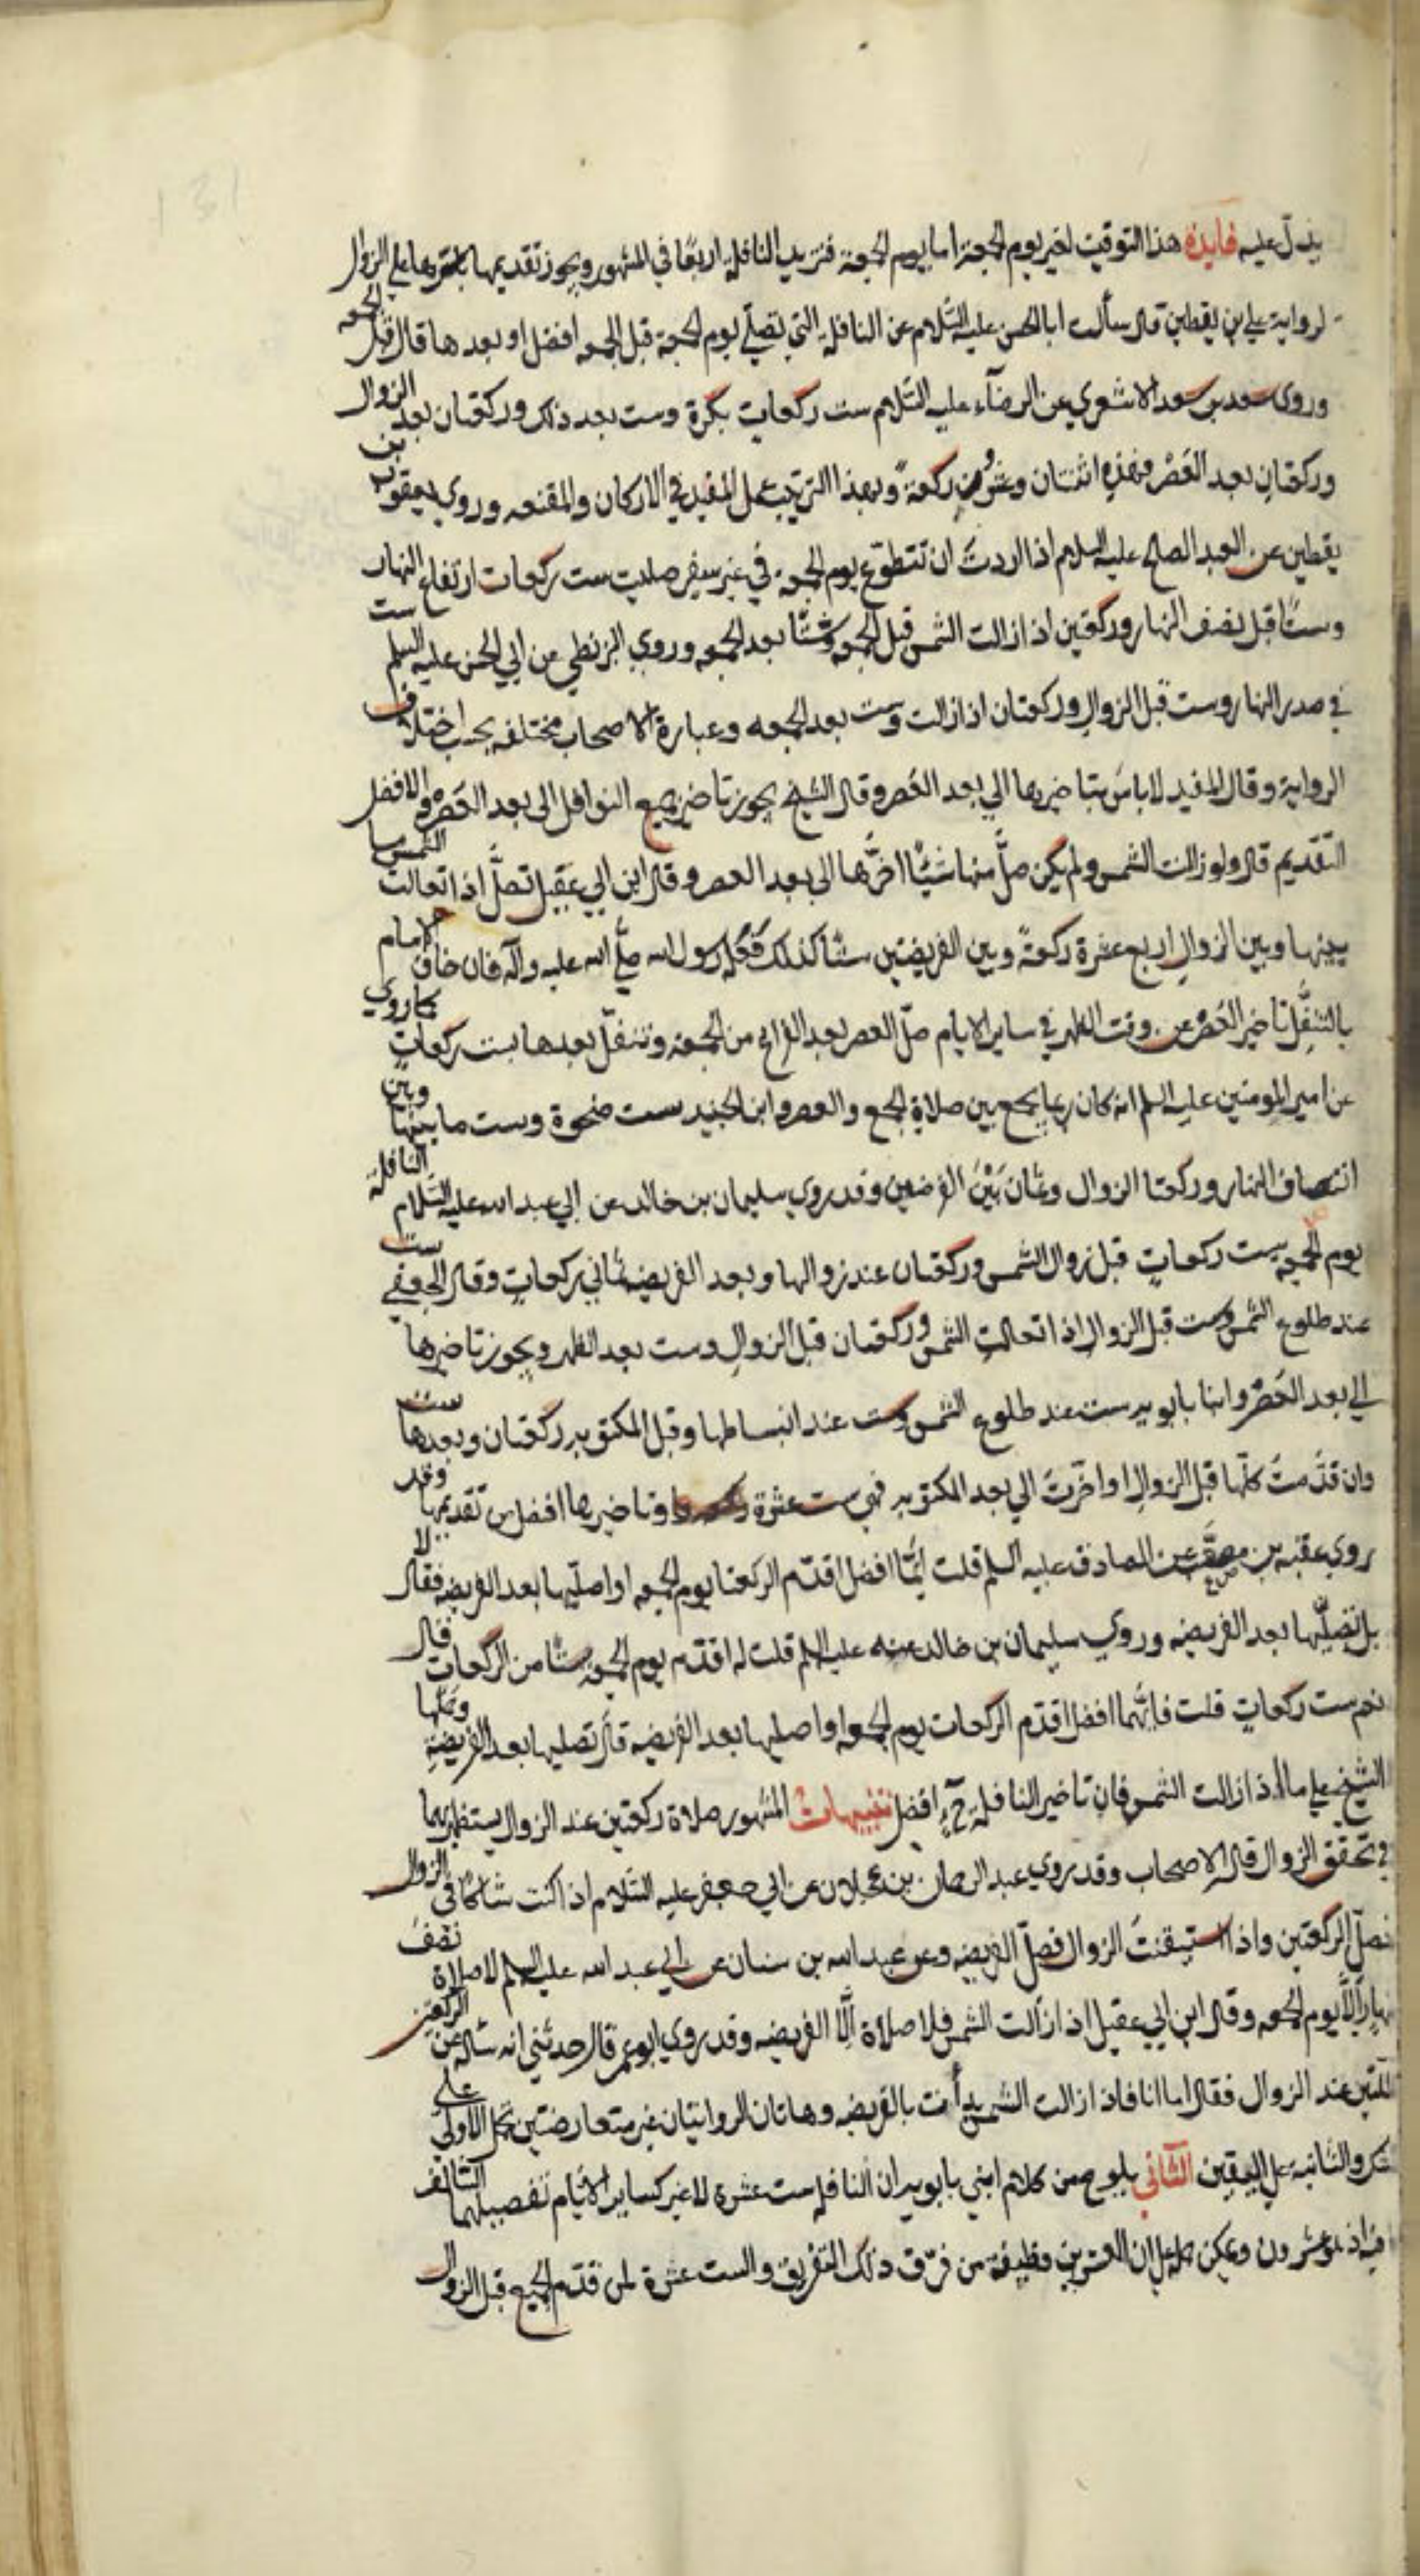 يدل عليه فايدة هذا التوقيت لغير يوم الجمعة اما يوم الجمعة فتزيد النافلة اربعًا في المشهور ويجوز تقديمها باسرها على الزوال
لرواية علي بن يقطين قال سألت ابا الحسن عليه السّلام عن النافلة التي تصلّي يوم الجمعة قبل الجمعه افضل او بعدها قال قبل الجمعه
وروى سعد بن سعد الاشعري عن الرضآء عليه السّلام ست ركعات بكرة وست بعد ذلك وركعتان بعد الزوال
وركعتان بعد العَصْر فهذه اثنتان وعشرُون ركعةً وبهذا الترتيب عمل المفيد في الاركان والمقنعه وروي يعقوب بن
يقطين عن العبد الصالح عليه السلام اذا اردتَ ان تتطوّع يوم الجمعه في غير سفر صليت ست ركعات ارتفاع النهار
وستًا قبل نصف النهار وركعتين اذا زالت الشمس قبل الجمعه وستًّا بعد الجمعه وروي البزنطي عن ابي الحسن عليه السلم ست
في صدر النهار وست قبل الزوال وركعتان اذا زالت وست بعد الجمعه وعبارة الاصحاب مختلفه بحسب اختلاف
الرواية وقال المفيد لا باسَ بتاخيرها الي بعد العَصر وقال الشيخ يجوز تاخير جميع النوافل الى بعد العَصْر والافضل
التقديم قال ولو زالت الشمس ولم يكن صلّى منها شيئًا اخّرها الى بعد العصر وقال ابن ابي عَقيل تصلَّ اذا تعالت الشمس ما
بينها وبين الزوال اربع عشرة ركعةً وبين الفريضتين ستًا كذلك فَعَلَه رسول الله صلّى الله عليه وآله فان خاف الامام
بالتنفّل تاخير العَصْر عن وقت الظهر في ساير الايام صلّ العصر بعد الفراغ من الجمعه وتنفّل بعدها بست ركعات كما روي
عن امير المومنين عليه السلم انه كان ربما يجمع بين صلاة الجمع والعصر وابن الجنيد ست ضحوة وست ما بينها وبين
انتصاف النهار وركعتا الزوال وثمان بَيْنَ الفرضين وقد روي سليمان بن خالد عن ابي عبد الله عليه السّلام النافلة
يوم الجمعه ست ركعاتٍ قبل زوال الشمس وركعتان عند زوالها وبعد الفريضه ثماني ركعاتٍ وقال الجعفي ست
عند طلوع الشمس وست قبل الزوال اذا تعالت الشمس وركعتان قبل الزوال وست بعد الظهر ويجوز تاخيرها
الي بعد العَصْر وابنا بابويه ست عند طلوع الشمس وست عند انبساطها وقبل المكتوبه ركعتان وبعدها ست
وان قدّمتَ كلّها قبل الزوال او اخّرتَ الي بعد المكتوبه فهي ست عشرة ركعه وتاخيرها افضل من تقديمها وقد
روي عقبه بن مصعب عن الصادق عليه السلم قلت ايّما افضل اقدّم الركعتا يوم الجمعه او اصلّيها بعد الفريضه فقال لا
بل تصلّيها بعد الفريضه وروي سليمان بن خالد عنه عليه السلم قلت له اقدّم يوم الجمعه شيئا من الركعات قال
نعم ست ركعاتٍ قلت فايّهما افضل اقدّم الركعات يوم الجمعه او اصليها بعد الفريضه قال تصليها بعد الفريضة وحملها
الشيخ على ما اذا زالت الشمس فان تاخير النافلة حٓ افضل تنبيهات المشهور صلاة ركعتين عند الزوال يستظهر بهما
في تحقق الزوال قاله الاصحاب وقد روي عبد الرحمان بن عجلان عن ابي جعفر عليه السّلام اذا كنت شاكًا في الزوال
فصلّ الركعتين واذا استيقنتَ الزوال فصلّ الفريضه وعن عبد الله بن سنان عن ابي عبد الله عليه السلم لا صلاة نصف
نهارٍ الاّ يوم الجمعه وقال ابن ابي عقيل اذا زالت الشمس فلا صلاة الّا الفريضه وقد روي ابو عمر قال حدثني انه سأله عن الركعتين
اللتين عند الزوال فقال اما انا فاذا زالت الشمس بدأت بالفريضه وهاتان الروايتان غير متعارضتين بحمل الاولي على
الشك والثانية على اليقين الثاني يلوح من كلام ابني بابويه ان النافله ست عشرة لا غير كساير الايّام تفصيلهما السالف
فانه عشرون ويمكن حمله على ان العشرين وظيفة من فرّق ذلك التفريق والست عشرة لمن قدّم الجميع قبل الزوال